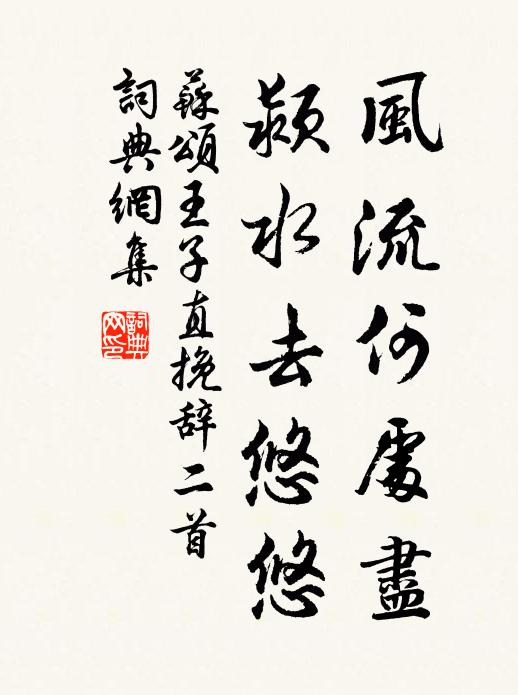 風流何處盡
潁水去悠悠
蘇頌王子直挽辞二首
詞典網集
詞典
网印